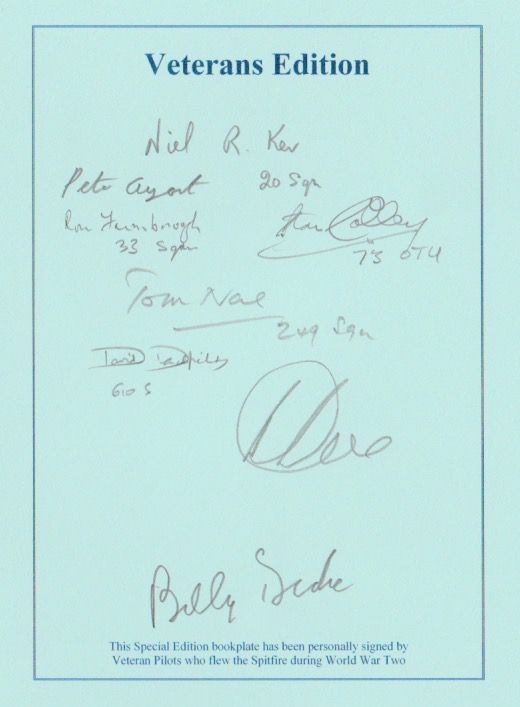 Veterans Edition
Niel R. Ker
Pete 20 Sqn
Ron Farnborough
33 Sqn
Stan Colley
73 OTU
Tom Neil
249 Sqn
David
610 S
Billy Drake
This Special Edition bookplate has been personally signed by
Veteran Pilots who flew the Spitfire during World War Two